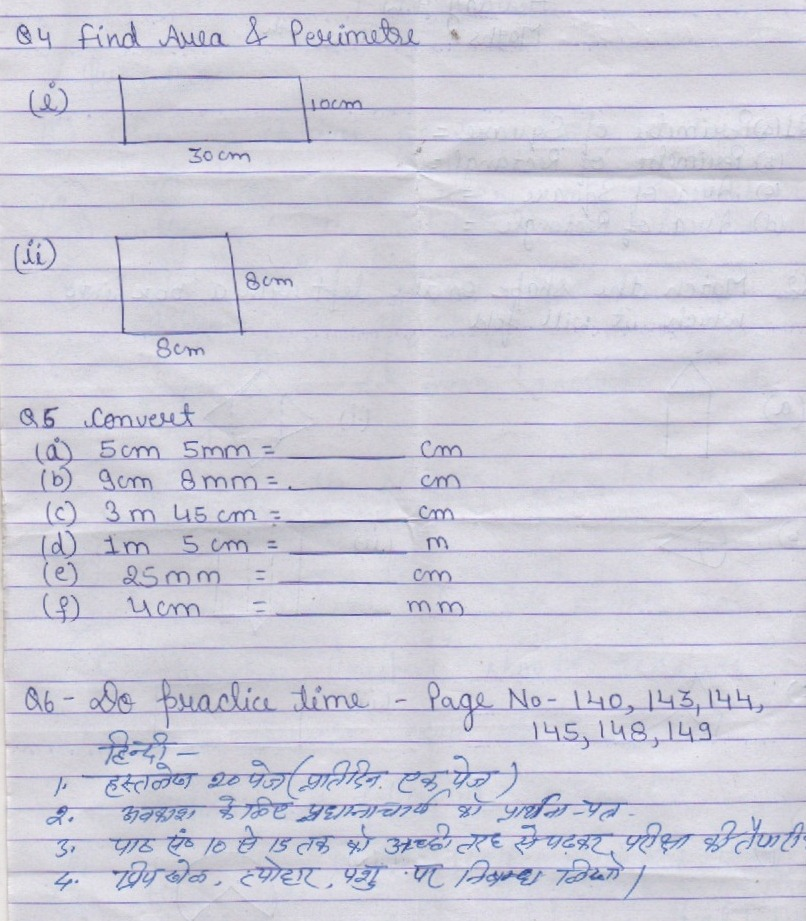 Q4 Find Area & Perimetre
(i) 10cm
30cm
(ii)
8cm
8cm
Q5 Convert
(a) 5cm 5mm = ________ cm
(b) 9cm 8mm = ________ cm
(c) 3m 45cm = ________ cm
(d) 1m 5cm = ________ m
(e) 25mm = ________ cm
(f) 4cm = ________ mm
Q6 - Do practice time - Page No- 140, 143, 144,
145, 148, 149
हिन्दी -
1. हस्तलेख 20 पेज (प्रतिदिन एक पेज)
2. अवकाश के लिए प्रधानाचार्य को प्रार्थना-पत्र.
3. पाठ सं० 10 से 15 तक को अच्छी तरह से पढ़कर परीक्षा की तैयारी
4. प्रिय खेल, त्योहार, पशु पर निबन्ध लिखो।